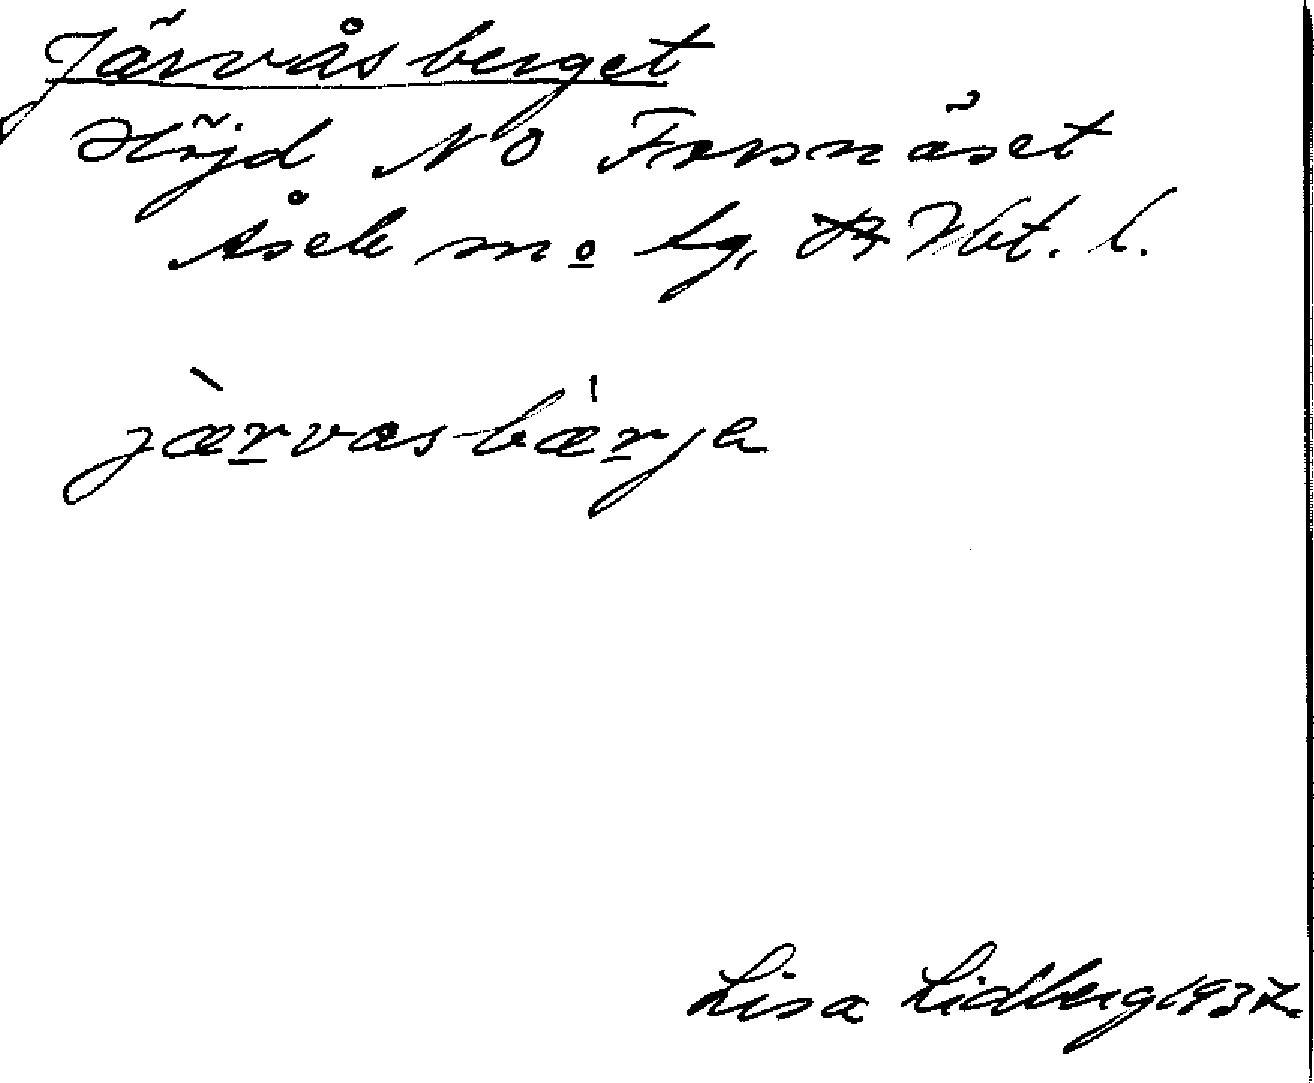 Järvåsberget
Höjd NO Forsnäset
Åsele m:o lg, Vbt. l.
jær̲vasbær̲ja
Lisa Lidberg 1937.